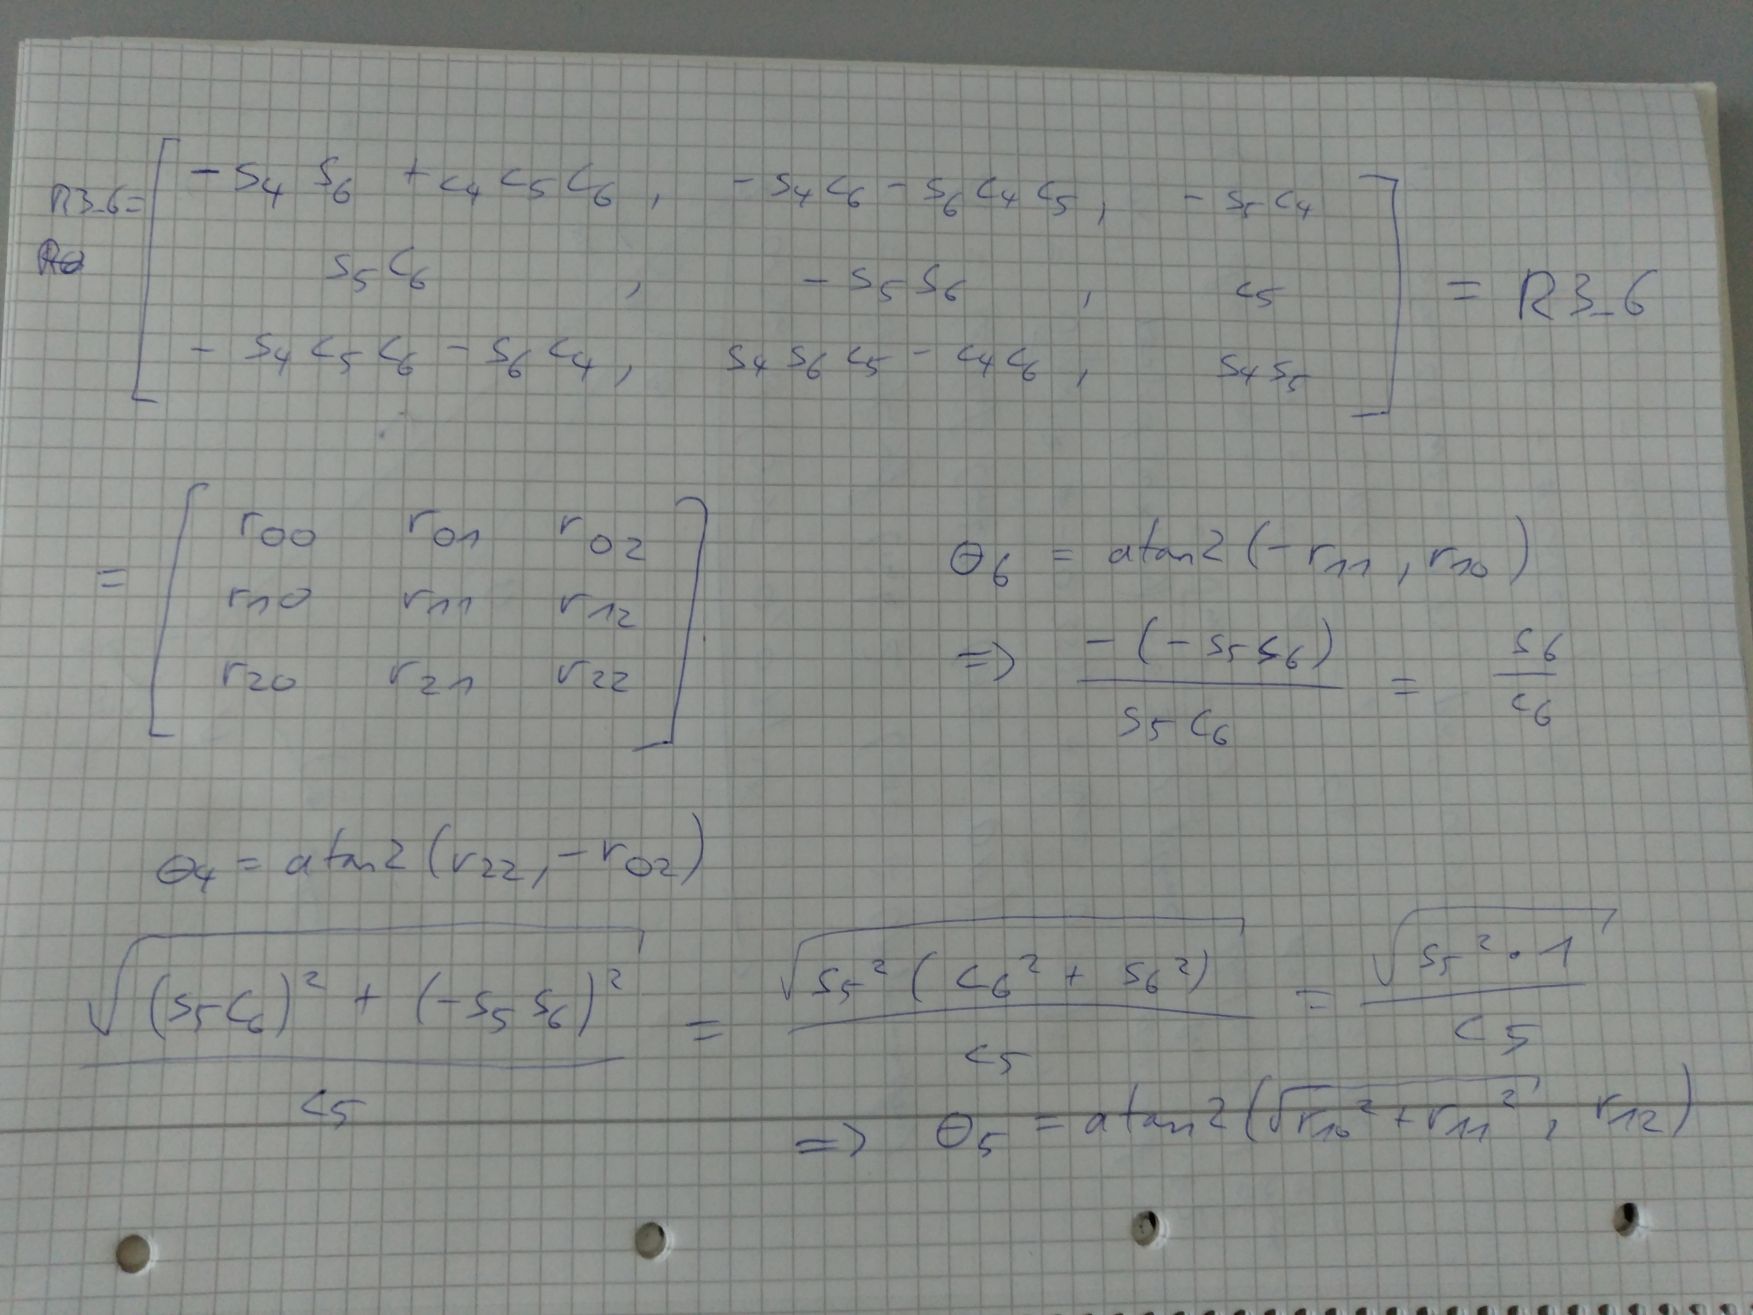 R3_6 = [ -s4 s6 + c4 c5 c6 , -s4 c6 - s6 c4 c5 , -s5 c4
s5 c6 , -s5 s6 , c5
-s4 c5 c6 - s6 c4 , s4 s6 c5 - c4 c6 , s4 s5 ] = R3_6
= [ r00 r01 r02
r10 r11 r12
r20 r21 r22 ]
θ6 = atan2(-r11, r10)
=> -(-s5 s6) / s5 c6 = s6 / c6
θ4 = atan2(r22, -r02)
√((s5 c6)² + (-s5 s6)²) / c5 = √(s5² (c6² + s6²)) / c5 = √(s5² · 1) / c5
=> θ5 = atan2(√(r10² + r11²), r12)